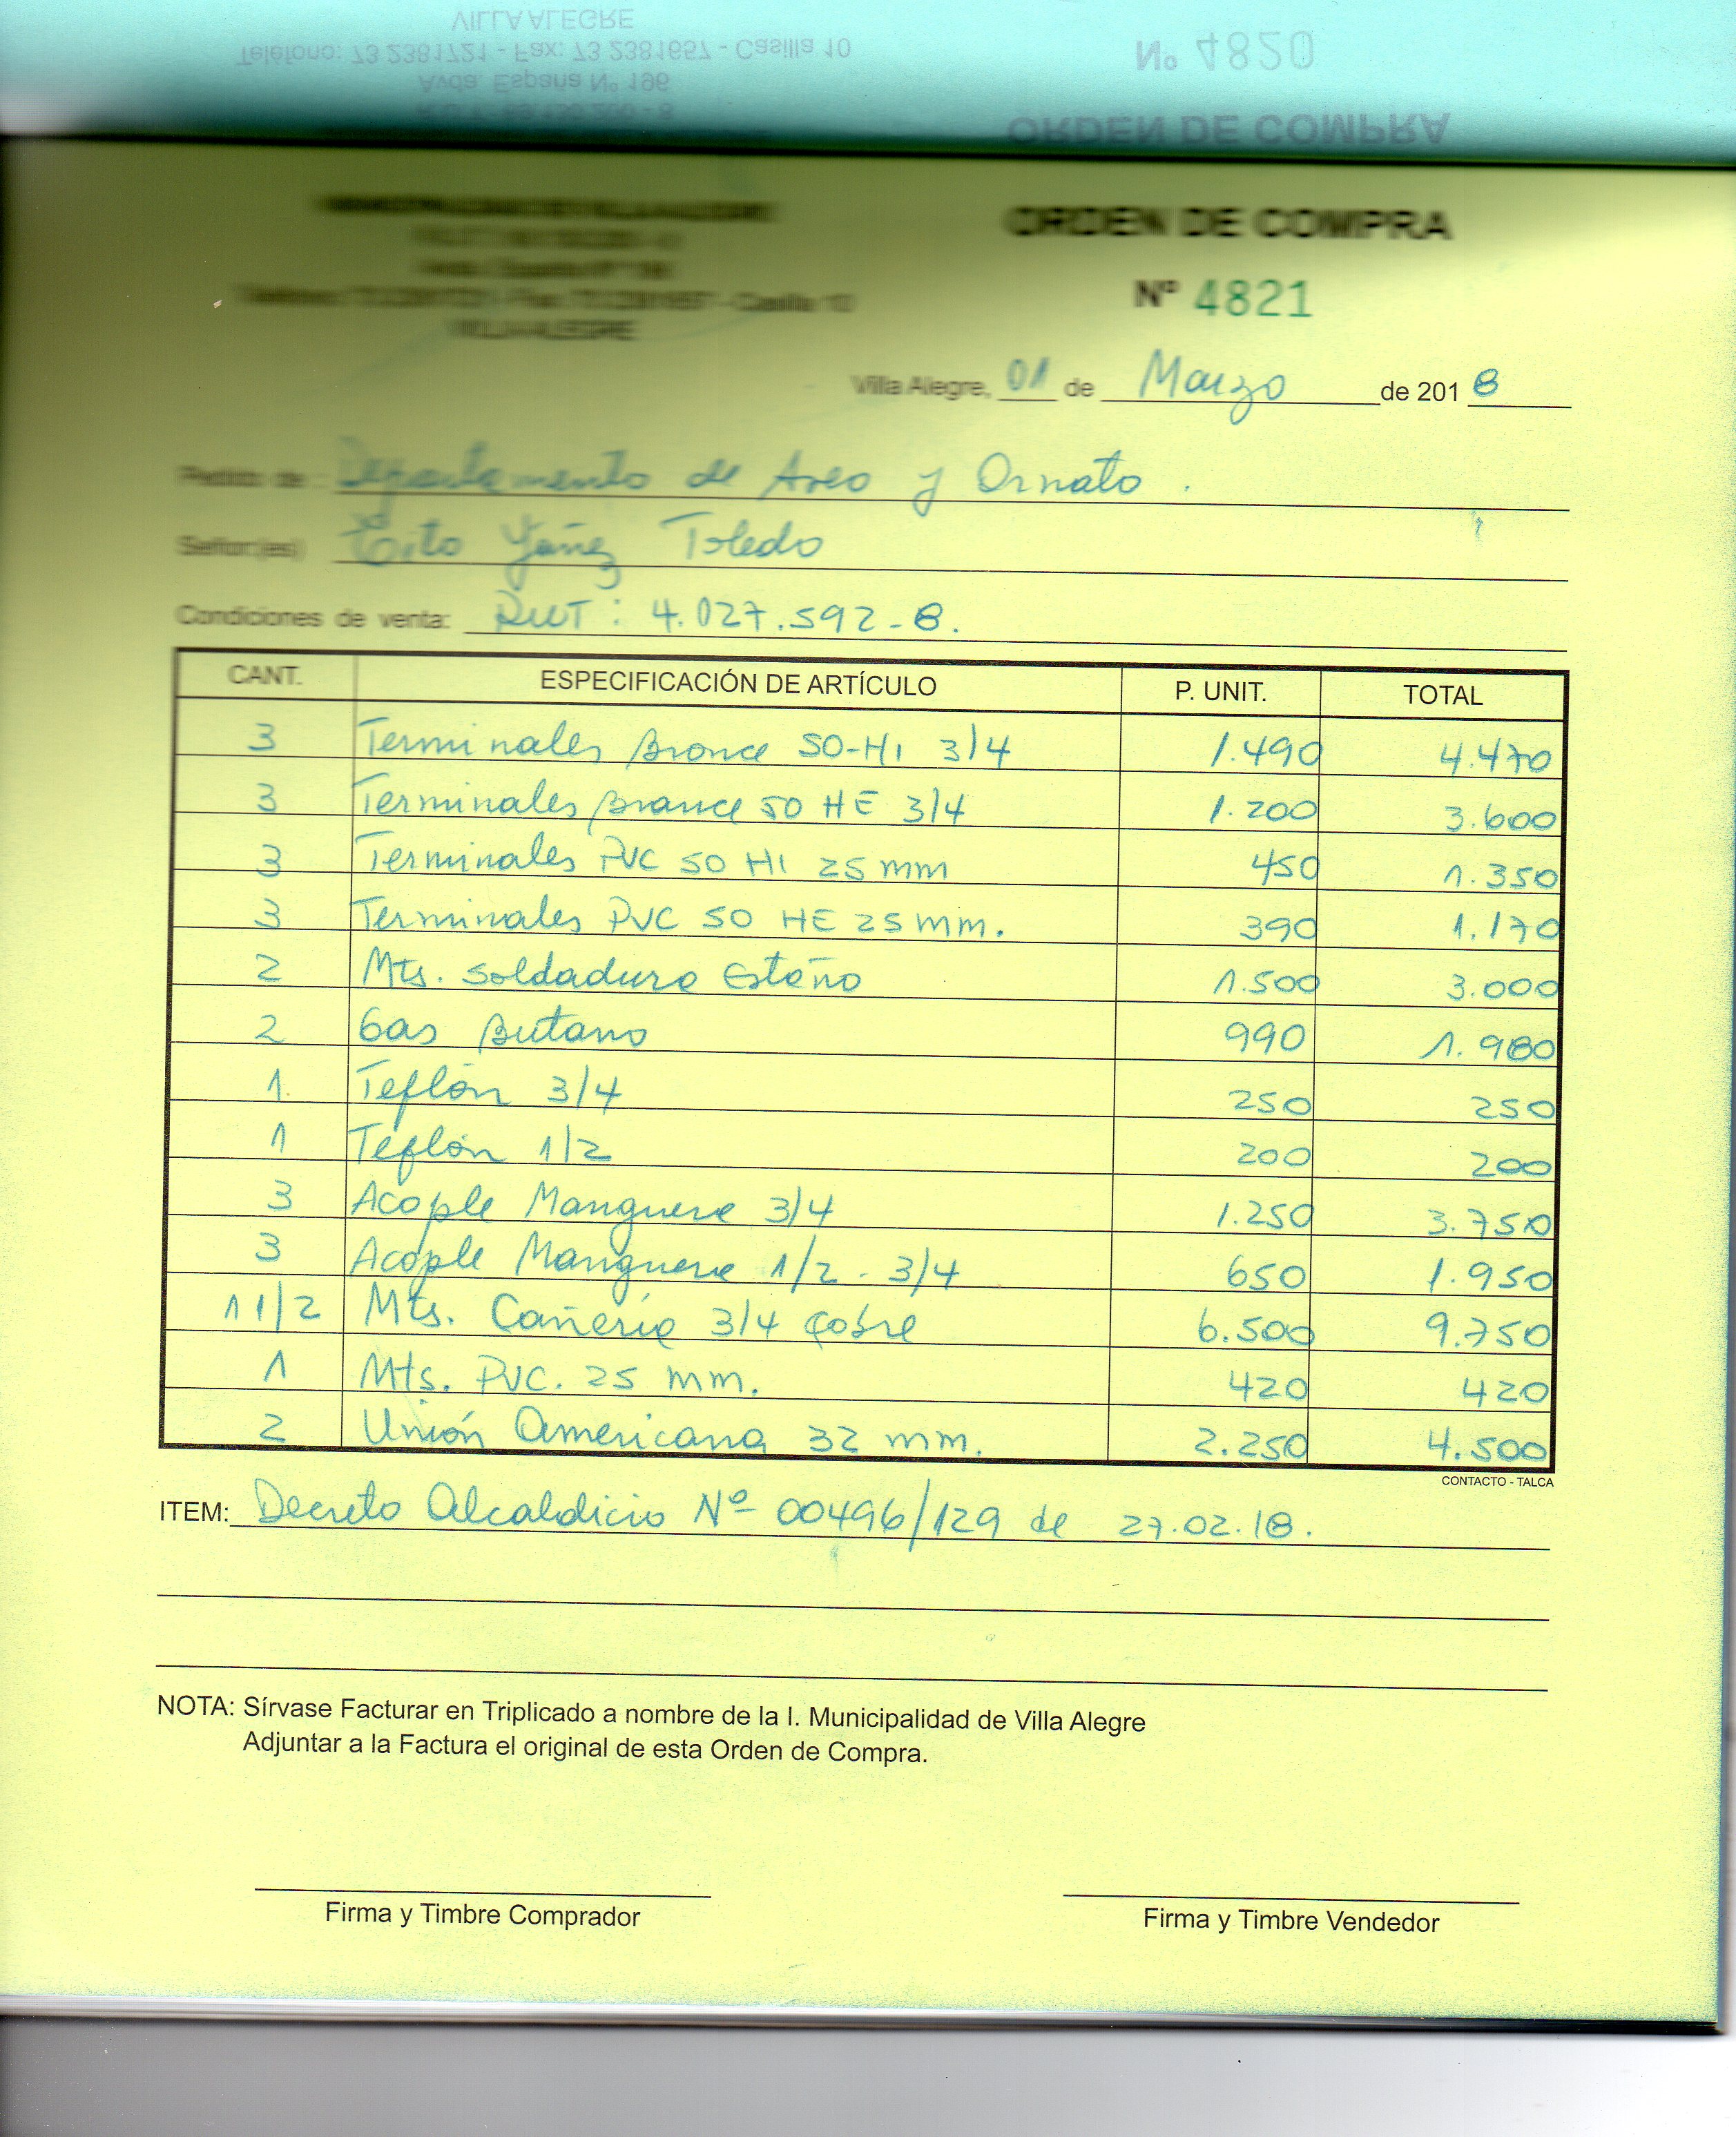 VILLA ALEGRE
Teléfono: 73 2381721 - Fax: 73 2381657 - Casilla 10
Avda. España Nº 196
Nº 4820
ORDEN DE COMPRA
ORDEN DE COMPRA
Nº 4821
Casilla 10
VILLA ALEGRE
Villa Alegre, 01 de Marzo de 2018
Pedido de: Departamento de Aseo y Ornato.
Señor(es) Tito Yañez Toledo
Condiciones de venta: RUT: 4.027.592-8.
CANT. ESPECIFICACIÓN DE ARTÍCULO P. UNIT. TOTAL
3 Terminales Bronce SO-HI 3/4 1.490 4.470
3 Terminales Bronce SO HE 3/4 1.200 3.600
3 Terminales PVC SO HI 25 mm 450 1.350
3 Terminales PVC SO HE 25 mm. 390 1.170
2 Mts. Soldadura Estaño 1.500 3.000
2 Gas Butano 990 1.980
1 Teflón 3/4 250 250
1 Teflón 1/2 200 200
3 Acople Manguera 3/4 1.250 3.750
3 Acople Manguera 1/2 - 3/4 650 1.950
1 1/2 Mts. Cañería 3/4 Cobre 6.500 9.750
1 Mts. PVC. 25 mm. 420 420
2 Unión Americana 32 mm. 2.250 4.500
CONTACTO - TALCA
ITEM: Decreto Alcaldicio Nº 00496/129 de 27.02.18.
NOTA: Sírvase Facturar en Triplicado a nombre de la I. Municipalidad de Villa Alegre
Adjuntar a la Factura el original de esta Orden de Compra.
Firma y Timbre Comprador Firma y Timbre Vendedor